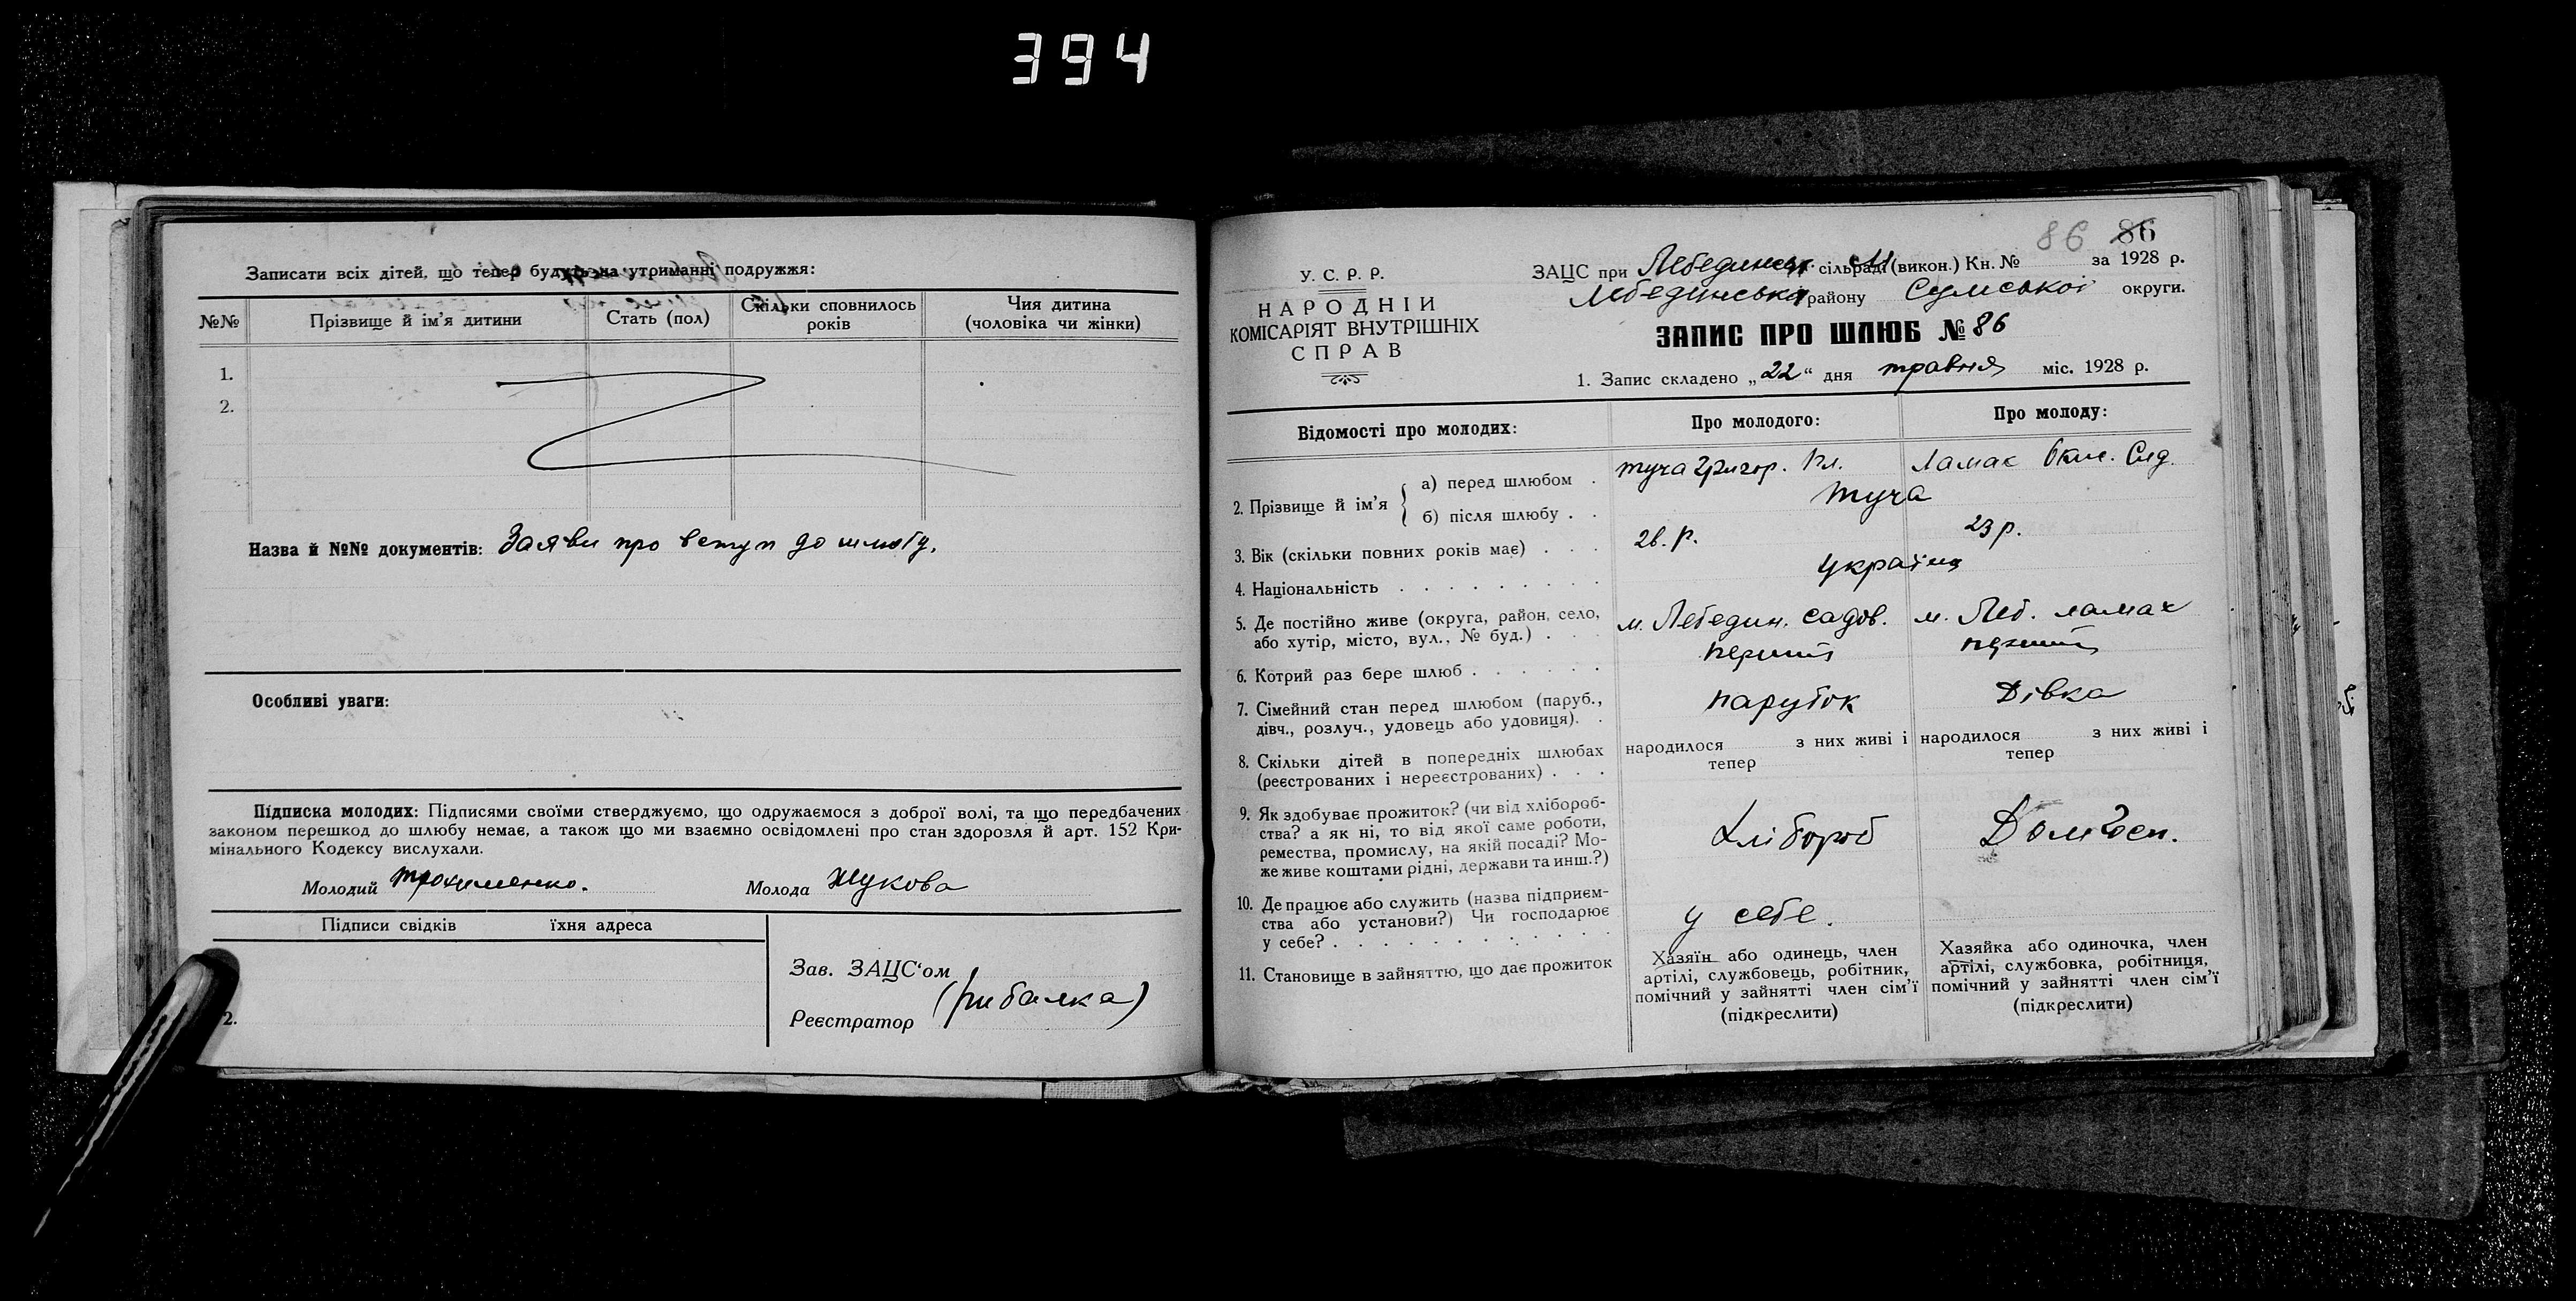 394
Записати всіх дітей, що тепер будуть на утриманні подружжя:
№№ Прізвище й ім'я дитини Стать (пол) Скільки сповнилось років Чия дитина (чоловіка чи жінки)
1.
2.
Назва й №№ документів: Заяви про вступ до шлюбу.
Особливі уваги:
Підписка молодих: Підписями своїми стверджуємо, що одружаємося з доброї волі, та що передбачених
законом перешкод до шлюбу немає, а також що ми взаємно освідомлені про стан здоровля й арт. 152 Кри-
мінального Кодексу вислухали.
Молодий Трохименко. Молода Жукова
Підписи свідків їхня адреса
Зав. ЗАЦС'ом
(Рибалка)
2.
Реєстратор
86 86
У. С. Р. Р.
НАРОДНІЙ
КОМІСАРІЯТ ВНУТРІШНІХ
СПРАВ
ЗАЦС при Лебединськ. сільраді (викон.) Кн. № за 1928 р.
Лебединська району Сумської округи.
ЗАПИС ПРО ШЛЮБ № 86
1. Запис складено „22“ дня травня міс. 1928 р.
Відомості про молодих: Про молодого: Про молоду:
2. Прізвище й ім'я
а) перед шлюбом . Туча Григор. Пл. Ламах
б) після шлюбу . . Туча
3. Вік (скільки повних років має) . . . 26. р. 23 р.
4. Національність . . . . . . . . . Україн
5. Де постійно живе (округа, район, село, м. Лебедин. садов. м. Леб. ламах
або хутір, місто, вул., № буд.) . . .
6. Котрий раз бере шлюб . . . . . . перший перший
7. Сімейний стан перед шлюбом (паруб., парубок Дівка
дівч., розлуч., удовець або удовиця). .
8. Скільки дітей в попередніх шлюбах народилося з них живі і народилося з них живі і
(реєстрованих і нереєстрованих) . . . тепер тепер
9. Як здобуває прожиток? (чи від хлібороб-
ства? а як ні, то від якої саме роботи, Хлібороб Дом госп.
ремества, промислу, на якій посаді? Мо-
же живе коштами рідні, держави та инш.?)
10. Де працює або служить (назва підприєм-
ства або установи?) Чи господарює у себе.
у себе? . . . . . . . . . . . .
11. Становище в зайняттю, що дає прожиток
Хазяїн або одинець, член
артілі, службовець, робітник,
помічний у зайнятті член сім'ї
(підкреслити)
Хазяйка або одиночка, член
артілі, службовка, робітниця,
помічний у зайнятті член сім'ї
(підкреслити)